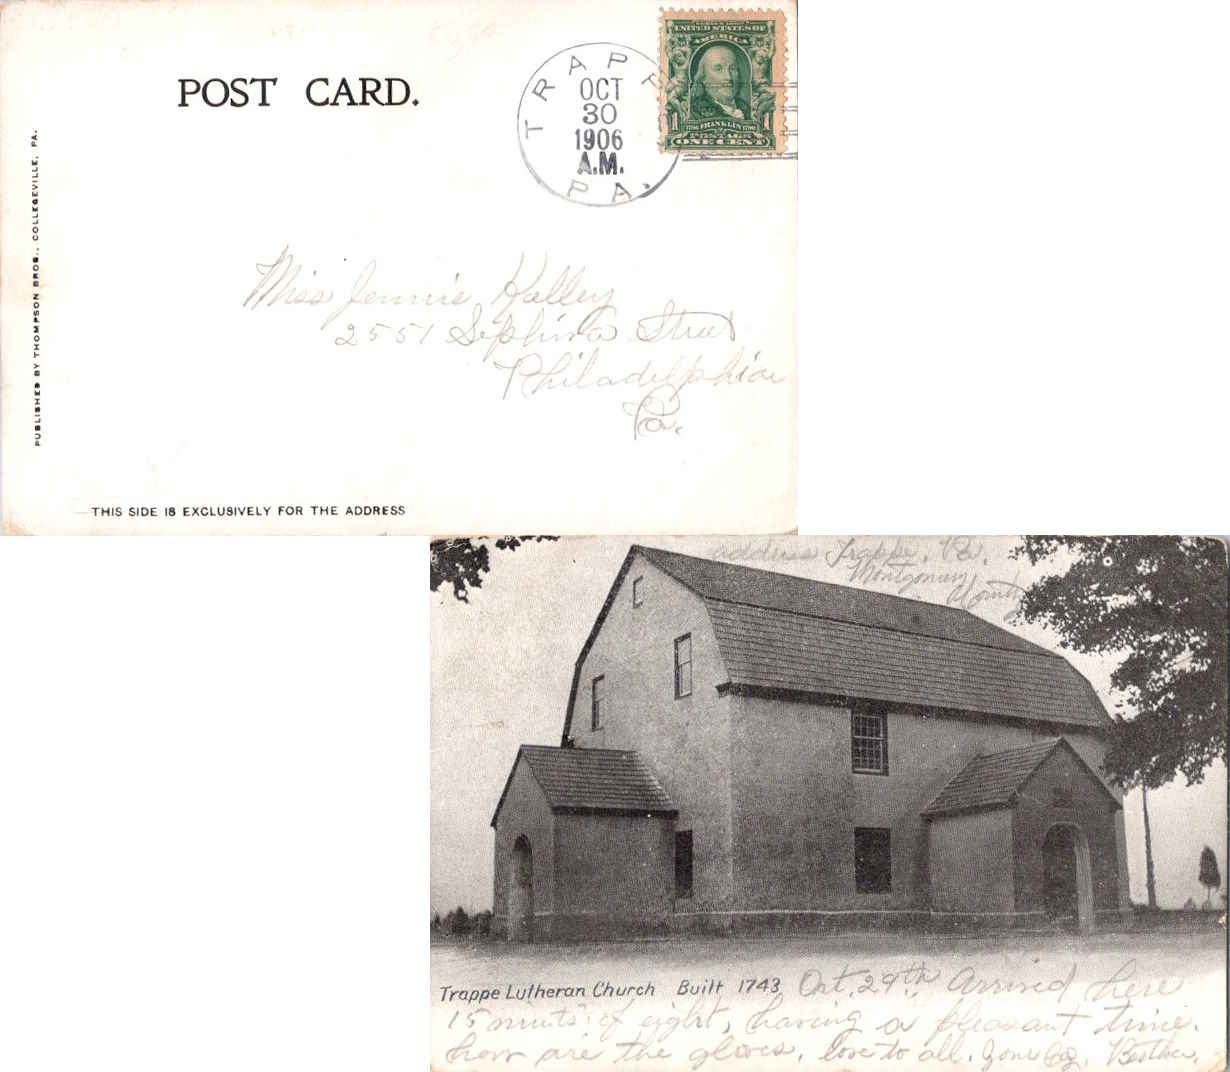 POST CARD.
TRAPPE
OCT
30
1906
A.M.
PA.
UNITED STATES OF
AMERICA
1 1
1706 FRANKLIN 1790
POSTAGE
ONE CENT
PUBLISHED BY THOMPSON BROS., COLLEGEVILLE, PA.
Miss Jennie Kalley
2551 Sephiva Street
Philadelphia
Pa.
THIS SIDE IS EXCLUSIVELY FOR THE ADDRESS
address Trappe, Pa.
Montgomery
County
Trappe Lutheran Church Built 1743 Oct, 29th Arrived here
15 minuts' of eight, having a pleasant time.
how are the gloves. love to all.